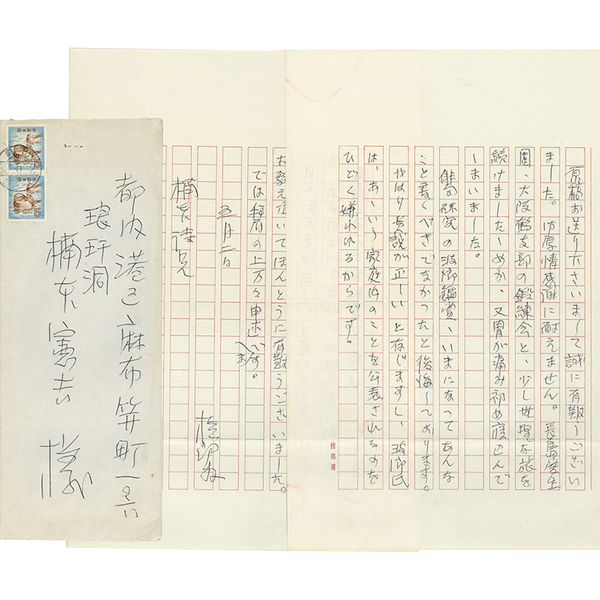 原稿お送り下さいまして誠に有難うござい
ました。御厚情感謝に耐えません。長島先生
園、大阪鶴支部の鍛練会と、少し無理な旅を
続けましたためか、又胃が痛み初め寝こんで
しまいました。
俳句研究の波郷鑑賞、いまになってあんな
こと書くべきでなかったと後悔しております。
やはり貴説が正しいと存じますし、波郷氏
は、あゝいう家庭内のことを公表されるのを
ひどく嫌われるからです。
お教え頂いてほんとうに有難うございました。
では拝眉の上万々申述べます。
五月二日
桂郎
楠本憲吉兄
桂郎用
都内港区麻布笄町
琅玕洞
楠本憲吉様